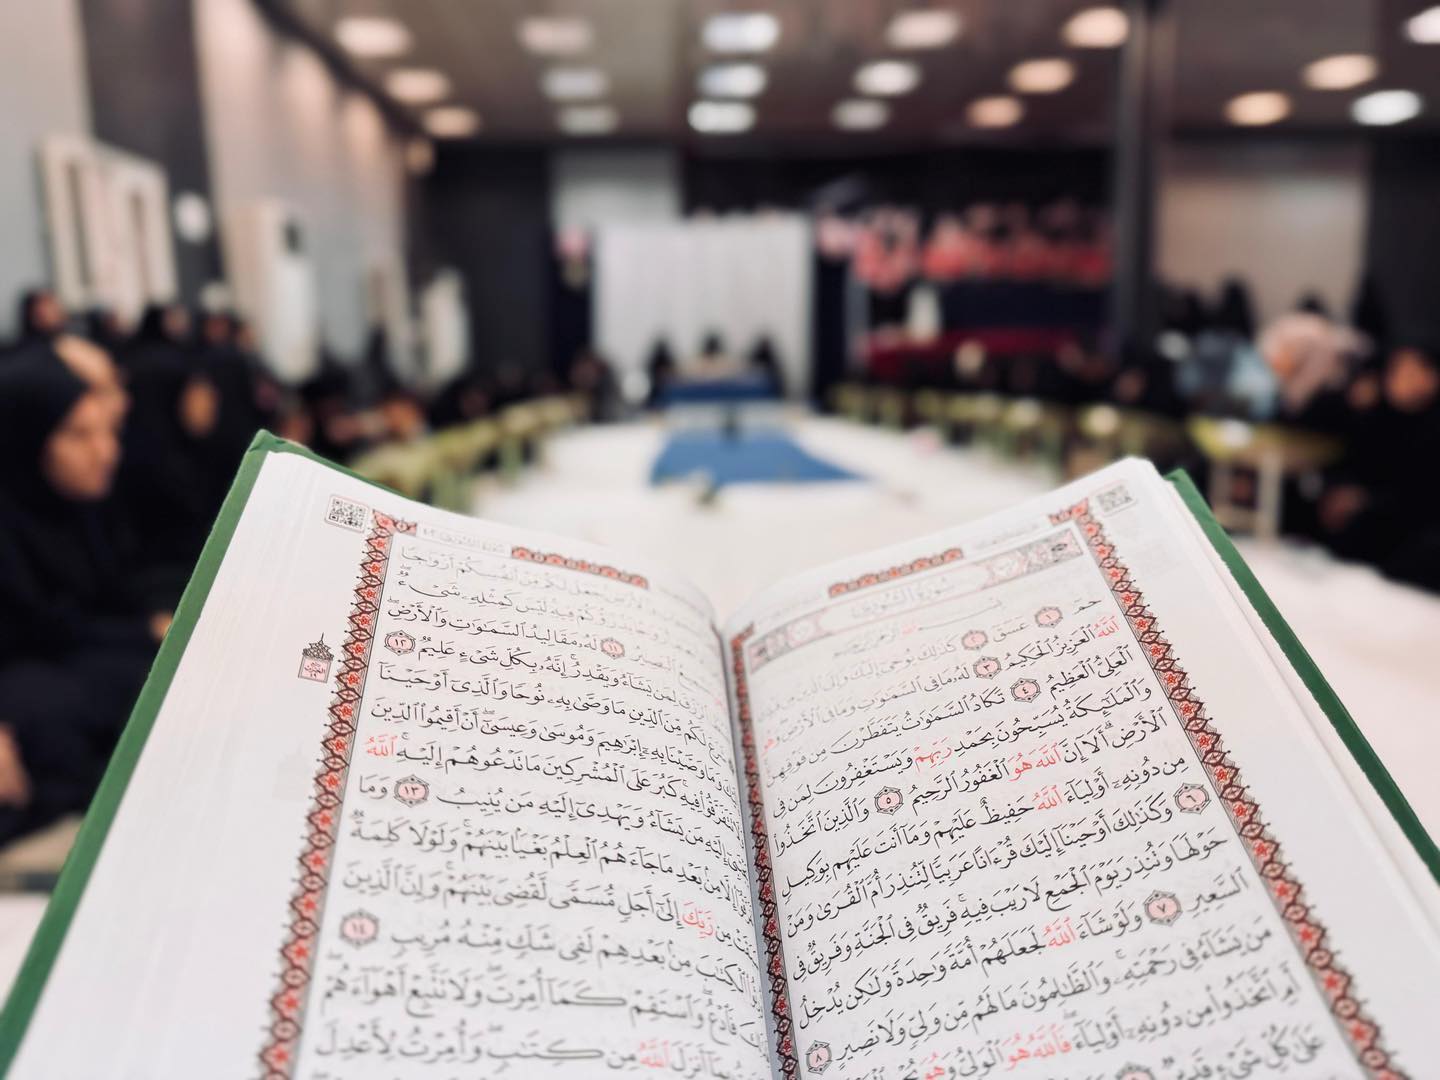 سُورَةُ الشُّورَىٰ
حمٓ ١ عٓسٓقٓ ٢ كَذَٰلِكَ يُوحِىٓ إِلَيْكَ وَإِلَى ٱلَّذِينَ
ٱللَّهُ ٱلْعَزِيزُ ٱلْحَكِيمُ ٣ لَهُۥ مَا فِى ٱلسَّمَٰوَٰتِ وَمَا فِى ٱلْأَرْضِ وَهُوَ
ٱلْعَلِىُّ ٱلْعَظِيمُ ٤ تَكَادُ ٱلسَّمَٰوَٰتُ يَتَفَطَّرْنَ مِن فَوْقِهِنَّ
وَٱلْمَلَٰٓئِكَةُ يُسَبِّحُونَ بِحَمْدِ رَبِّهِمْ وَيَسْتَغْفِرُونَ لِمَن فِى
ٱلْأَرْضِ أَلَآ إِنَّ ٱللَّهَ هُوَ ٱلْغَفُورُ ٱلرَّحِيمُ ٥ وَٱلَّذِينَ ٱتَّخَذُوا۟
مِن دُونِهِۦٓ أَوْلِيَآءَ ٱللَّهُ حَفِيظٌ عَلَيْهِمْ وَمَآ أَنتَ عَلَيْهِم بِوَكِيلٍ
٦ وَكَذَٰلِكَ أَوْحَيْنَآ إِلَيْكَ قُرْءَانًا عَرَبِيًّا لِّتُنذِرَ أُمَّ ٱلْقُرَىٰ وَمَنْ
حَوْلَهَا وَتُنذِرَ يَوْمَ ٱلْجَمْعِ لَا رَيْبَ فِيهِ فَرِيقٌ فِى ٱلْجَنَّةِ وَفَرِيقٌ فِى
ٱلسَّعِيرِ ٧ وَلَوْ شَآءَ ٱللَّهُ لَجَعَلَهُمْ أُمَّةً وَٰحِدَةً وَلَٰكِن يُدْخِلُ
مَن يَشَآءُ فِى رَحْمَتِهِۦ وَٱلظَّٰلِمُونَ مَا لَهُم مِّن وَلِىٍّ وَلَا نَصِيرٍ ٨
أَمِ ٱتَّخَذُوا۟ مِن دُونِهِۦٓ أَوْلِيَآءَ فَٱللَّهُ هُوَ ٱلْوَلِىُّ وَهُوَ
عَلَىٰ كُلِّ شَىْءٍ قَدِيرٌ
وَٱلْأَرْضِ جَعَلَ لَكُم مِّنْ أَنفُسِكُمْ أَزْوَٰجًا
يَذْرَؤُكُمْ فِيهِ لَيْسَ كَمِثْلِهِۦ شَىْءٌ
ٱلْبَصِيرُ ١١ لَهُۥ مَقَالِيدُ ٱلسَّمَٰوَٰتِ وَٱلْأَرْضِ
ٱلرِّزْقَ لِمَن يَشَآءُ وَيَقْدِرُ إِنَّهُۥ بِكُلِّ شَىْءٍ عَلِيمٌ ١٢
لَكُم مِّنَ ٱلدِّينِ مَا وَصَّىٰ بِهِۦ نُوحًا وَٱلَّذِىٓ أَوْحَيْنَآ
وَمَا وَصَّيْنَا بِهِۦٓ إِبْرَٰهِيمَ وَمُوسَىٰ وَعِيسَىٰٓ أَنْ أَقِيمُوا۟ ٱلدِّينَ
تَتَفَرَّقُوا۟ فِيهِ كَبُرَ عَلَى ٱلْمُشْرِكِينَ مَا تَدْعُوهُمْ إِلَيْهِ ٱللَّهُ
إِلَيْهِ مَن يَشَآءُ وَيَهْدِىٓ إِلَيْهِ مَن يُنِيبُ ١٣ وَمَا
إِلَّا مِنۢ بَعْدِ مَا جَآءَهُمُ ٱلْعِلْمُ بَغْيًۢا بَيْنَهُمْ وَلَوْلَا كَلِمَةٌ
مِن رَّبِّكَ إِلَىٰٓ أَجَلٍ مُّسَمًّى لَّقُضِىَ بَيْنَهُمْ وَإِنَّ ٱلَّذِينَ
ٱلْكِتَٰبَ مِنۢ بَعْدِهِمْ لَفِى شَكٍّ مِّنْهُ مُرِيبٍ ١٤
فَٱدْعُ وَٱسْتَقِمْ كَمَآ أُمِرْتَ وَلَا تَتَّبِعْ أَهْوَآءَهُمْ
بِمَآ أَنزَلَ ٱللَّهُ مِن كِتَٰبٍ وَأُمِرْتُ لِأَعْدِلَ